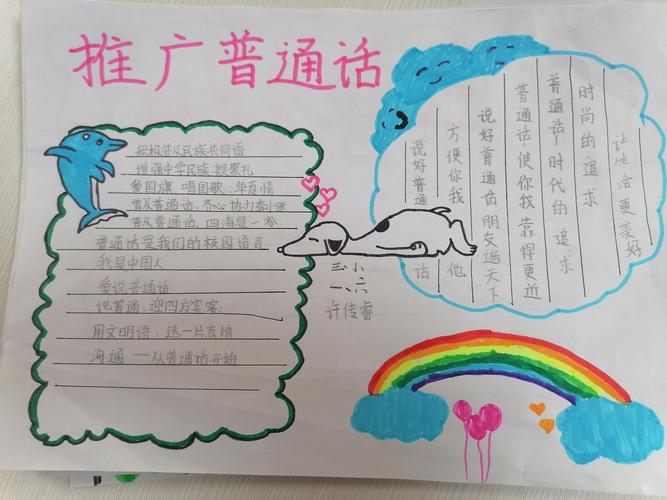 推广普通话
积极普及民族共同语
增强中华民族凝聚礼
国旗、唱国歌、真情
普及普通话、齐心协力奔小康
普及普通话、四海是一家
普通话是我们的校园语言
我是中国人
爱说普通话
说普通，迎四方宾客；
用文明语，送一片真情
沟通——从普通话开始
三小
一、六
许传睿
说好普通话
方便你我他
说好普通话朋友遍天下
普通话，使你我靠得更近
普通话，时代的追求
时尚的追求
让生活更美好